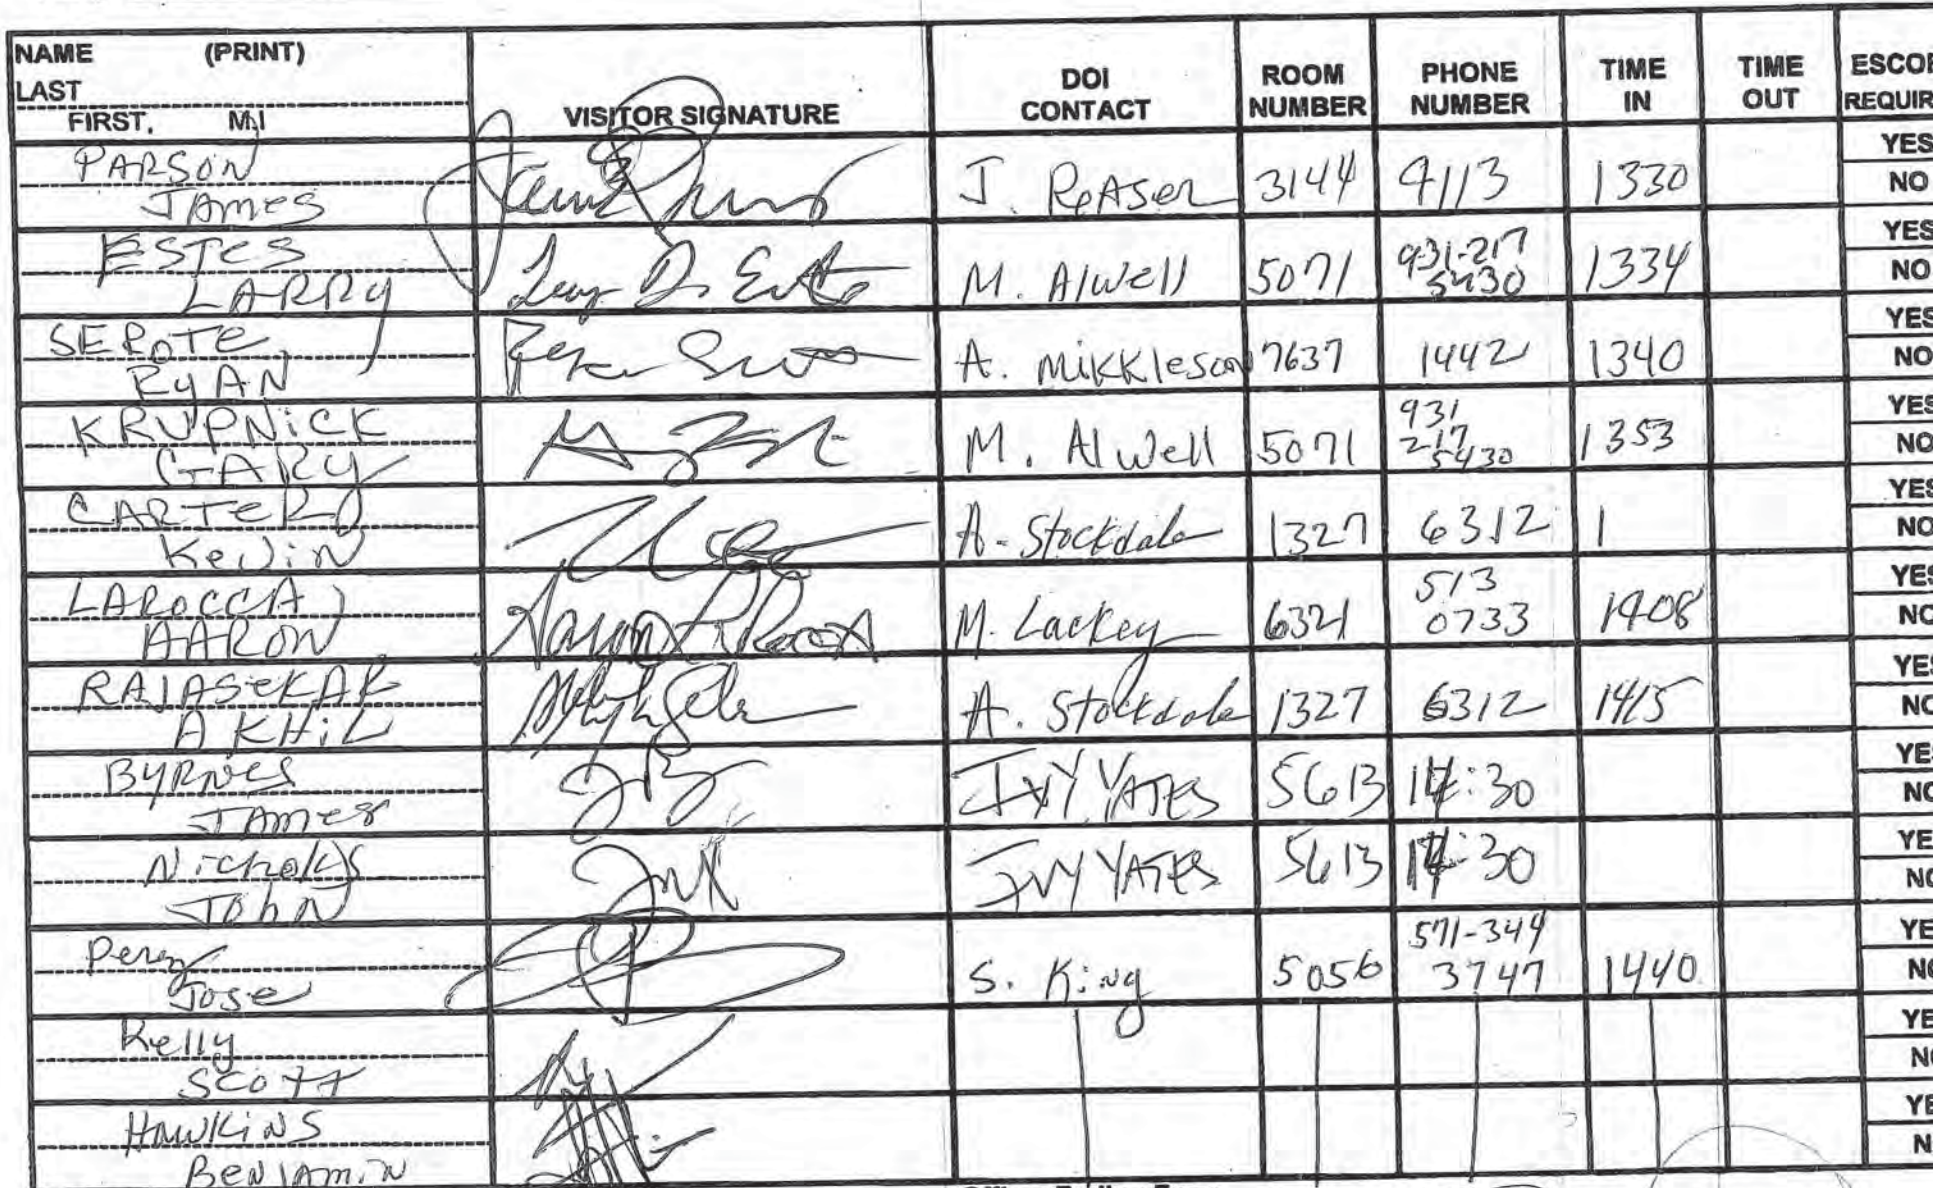 NAME (PRINT)
LAST
FIRST, M.I
VISITOR SIGNATURE
DOI
CONTACT
ROOM
NUMBER
PHONE
NUMBER
TIME
IN
TIME
OUT
ESCO
REQUIR
PARSON
JAMES
J. ReAser 3144 9113 1330
YES
NO
ESTES
LARRY
M. Alwell 5071 931-217
5430
1334
YES
NO
SEROTE,
RYAN
A. MIKKLESON 7637 1442 1340
YES
NO
KRUPNICK
GARY
M. Alwell 5071 931
217
5430
1353
YES
NO
CARTER
Kevin
A. Stockdale 1327 6312 1
YES
NO
LAROCCA
AARON
M. Lackey 6321 513
0733
1408
YES
NO
RAJASEKAR
AKHIL
A. Stockdale 1327 6312 1415
YES
NO
BYRNES
JAMES
IVY YATES 5613 14:30
YES
NO
Nicholas
John
IVY YATES 5613 14:30
YE
NO
Perez
Jose
S. King 5056 571-344
3747
1440
YE
NO
Kelly
SCOTT
YE
NO
HAWKINS
BENJAMIN
YE
N